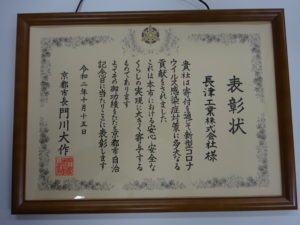 表彰状
長津工業株式会社様
貴社は寄付を通じて新型コロナ
ウイルス感染症対策に多大なる
貢献をされました
これは本市における安心・安全な
くらしの実現に大きく寄与する
ものであります
よってその御功績をたたえ京都市自治
記念日に当たりここに表彰します
令和二年十月十五日
京都市長門川大作